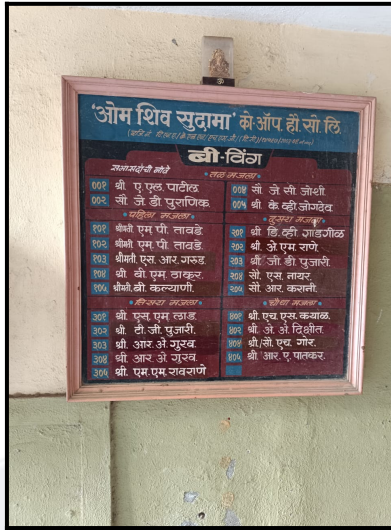 ॐ
'ओम शिव सुदामा' को-ऑप. हौ. सो. लि
बी-विंग
सभासदांची नांवे
तळ मजला
००१ श्री. ए. एल. पाटील
००२ सौ. जे. डी. पुराणिक
००४ सौ. जे. सी. जोशी
००५ श्री. के. व्ही. जोगदेव
पहिला मजला
१०१ श्रीमती एम. पी. तावडे
१०२ श्रीमती एम. पी. तावडे
१०३ श्रीमती. एस. आर. गरुड
१०४ श्री. बी. एम. ठाकूर.
१०५ श्रीमती. बी. कल्याणी.
दुसरा मजला
२०१ श्री. डि. व्ही गाडगीळ
२०२ श्री. अे. एम. राणे.
२०३ श्री. जी. डी. पुजारी.
२०४ सौ. एस. नायर.
२०५ सौ. आर. करानी.
तिसरा मजला
३०१ श्री. एस. एम. लाड.
३०२ श्री. टी. जी. पुजारी.
३०३ श्री. आर. अे. गुरव.
३०४ श्री. आर. अे. गुरव.
३०५ श्री. एम. एम. रावराणे
चौथा मजला
४०१ श्री. एच. एस. कयाळ.
४०२ श्री. अे. अे. दिक्षीत.
४०४ श्री./सौ. एच. गोर.
४०५ श्री. आर. ए. पातकर.